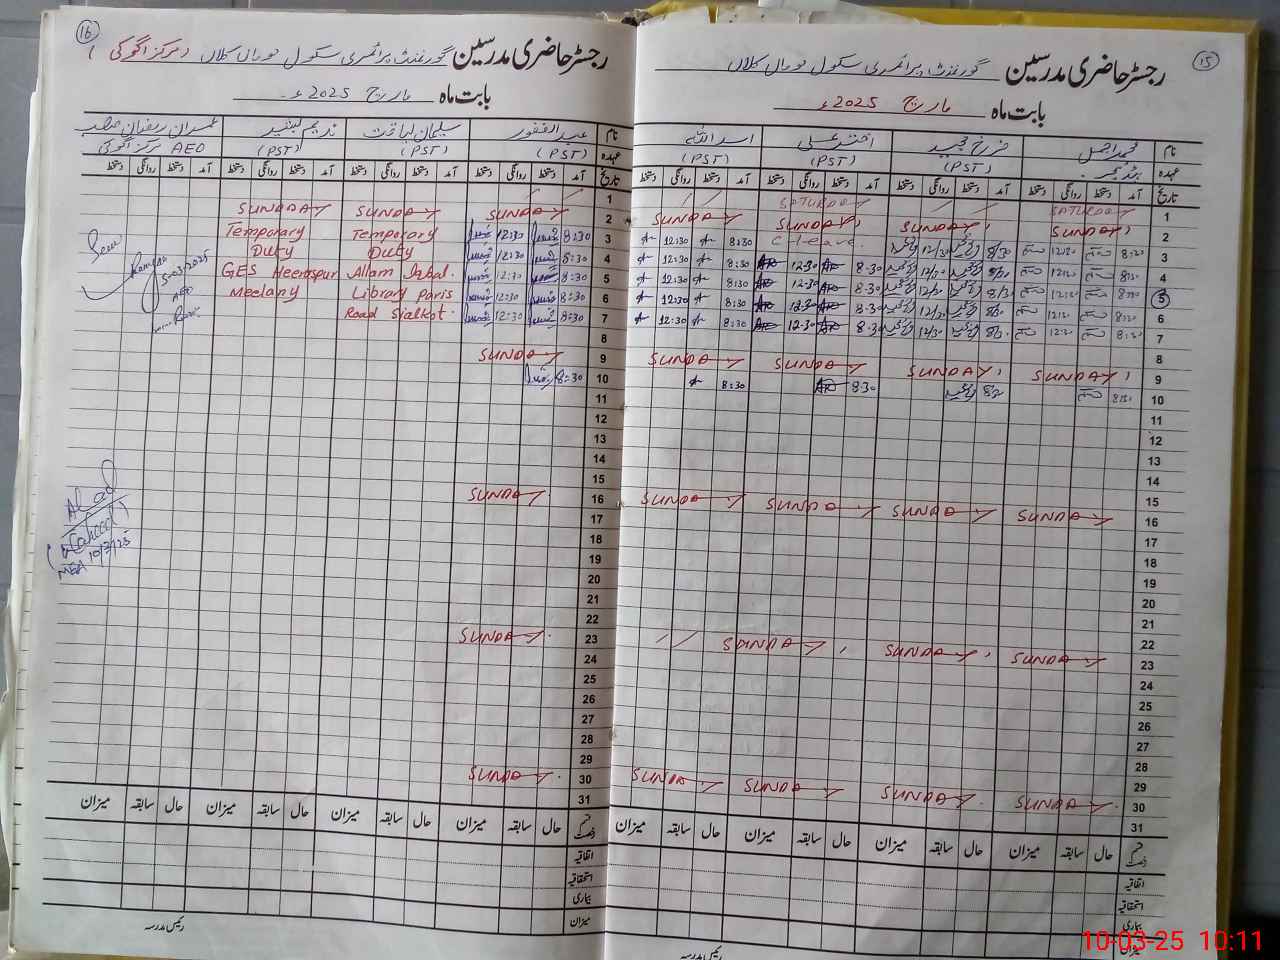 15
رجسٹر حاضری مدرسین گورنمنٹ پرائمری سکول کلاں
بابت ماہ مارچ 2025ء
نام محمد افضل فرخ مجید اختر علی اسد اللہ
عہدہ (PST) (PST) (PST)
تاریخ آمد دستخط روانگی دستخط آمد دستخط روانگی دستخط آمد دستخط روانگی دستخط آمد دستخط روانگی دستخط
1 SATURDAY SATURDAY
2 SUNDAY SUNDAY SUNDAY SUNDAY
3 8:20 12:20 8/30 12/30 C-leave 8:30 12:30
4 8:20 12:20 8/30 12/30 8.30 12.30 8:30 12:30
5 8:20 12:20 8/30 12/30 8.30 12.30 8:30 12:30
6 8:20 12:20 8/30 12/30 8.30 12.30 8:30 12:30
7 8:20 12:20 8/30 12/30 8.30 12.30 8:30 12:30
8
9 SUNDAY SUNDAY SUNDAY SUNDAY
10 8:20 8:30 8:30
11
12
13
14
15
16 SUNDAY SUNDAY SUNDAY SUNDAY
17
18
19
20
21
22
23 SUNDAY SUNDAY SUNDAY
24
25
26
27
28
29
30 SUNDAY SUNDAY SUNDAY SUNDAY
31
حال سابقہ میزان حال سابقہ میزان حال سابقہ میزان حال سابقہ میزان
اتفاقیہ
استحقاقیہ
بیماری
میزان
رئیس مدرسہ
16
رجسٹر حاضری مدرسین گورنمنٹ پرائمری سکول کلاں (مرکز اگوکی)
بابت ماہ مارچ 2025ء
نام عبدالغفور سلیمان لیاقت ندیم عمران رمضان
عہدہ (PST) (PST) (PST) AEO مرکز اگوکی
تاریخ آمد دستخط روانگی دستخط آمد دستخط روانگی دستخط آمد دستخط روانگی دستخط آمد دستخط روانگی دستخط
1
2 SUNDAY SUNDAY SUNDAY
3 8:30 12:30 Temporary Temporary
4 8:30 12:30 Duty Duty
5 8:30 12:30 Allam Iqbal GES Heerapur
6 8:30 12:30 Library Paris Meelany
7 8:30 12:30 Road Sialkot.
Seen
5-03-2025
AEO
8
9 SUNDAY
10 8:30
11
12
13
14
15
16 SUNDAY
17
18
19
20
21
22
23 SUNDAY
24
25
26
27
28
29
30 SUNDAY
31
MEA 10/3/25
حال سابقہ میزان حال سابقہ میزان حال سابقہ میزان حال سابقہ میزان
اتفاقیہ
استحقاقیہ
بیماری
میزان
رئیس مدرسہ
10-03-25 10:11